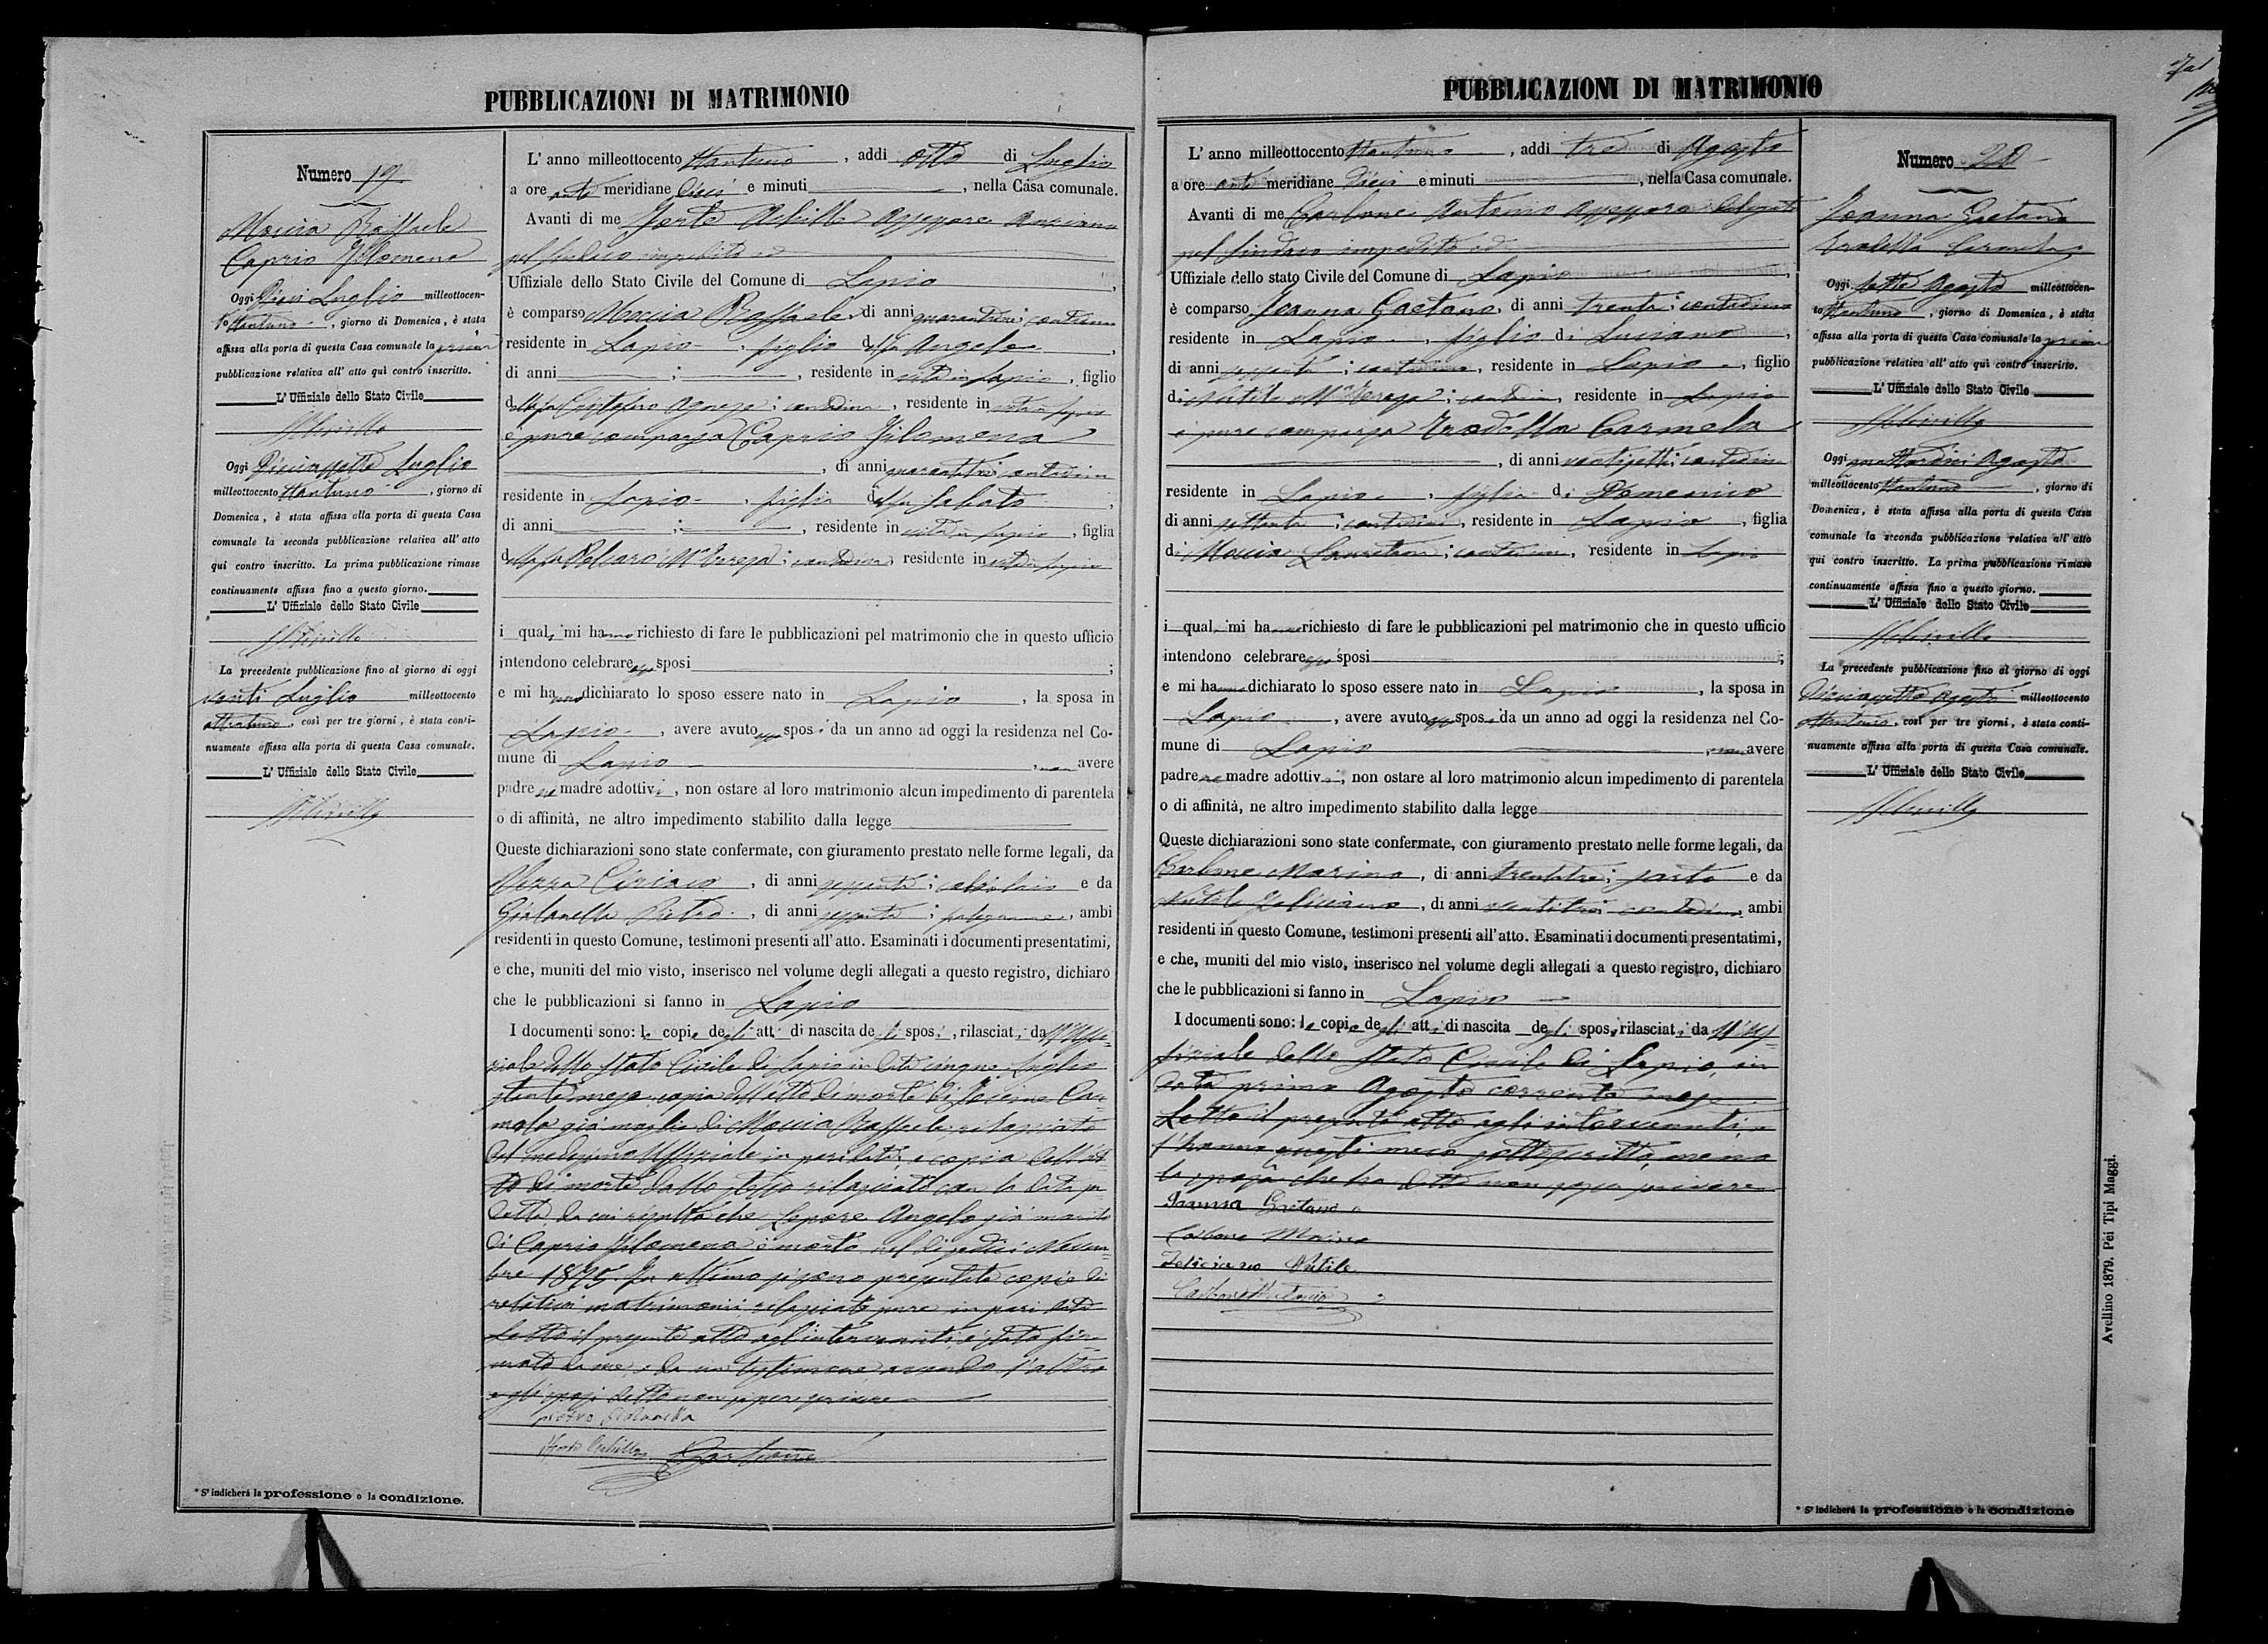 PUBBLICAZIONI DI MATRIMONIO
Numero 19
Moccia Raffaele
Caprio Filomena
Oggi Dieci Luglio milleottocen-
to ottantuno, giorno di Domenica, è stata
affissa alla porta di questa Casa comunale la prima
pubblicazione relativa all' atto quì contro inscritto.
L' Uffiziale dello Stato Civile
Oggi Diciassette Luglio
milleottocento ottantuno, giorno di
Domenica, è stata affissa alla porta di questa Casa
comunale la seconda pubblicazione relativa all' atto
qui contro inscritto. La prima pubblicazione rimase
continuamente affissa fino a questo giorno.
L' Uffiziale dello Stato Civile
La precedente pubblicazione fino al giorno di oggi
venti Luglio milleottocento
ottantuno, così per tre giorni, è stata conti-
nuamente affissa alla porta di questa Casa comunale.
L' Uffiziale dello Stato Civile
* Si indicherà la professione o la condizione.
L' anno milleottocento ottantuno, addi otto di Luglio
a ore anti meridiane dieci e minuti , nella Casa comunale.
Avanti di me Forte Achille Assessore Anziano
pel Sindaco impedito ed
Uffiziale dello Stato Civile del Comune di Lapio
è comparso Moccia Raffaele, di anni quarantatre; contadino
residente in Lapio, figlio del fu Angelo
di anni ; , residente in vita in Lapio, figlio
della fu Cristofaro Agnese; contadina, residente in vita in Lapio
è pure comparsa Caprio Filomena
, di anni quarantatre; contadina
residente in Lapio, figlia del fu Sabato
di anni ; , residente in vita in Lapio, figlia
della fu Polcaro Ma Teresa; contadina, residente in vita in Lapio
i quali mi hanno richiesto di fare le pubblicazioni pel matrimonio che in questo ufficio
intendono celebrare essi sposi ;
e mi hanno dichiarato lo sposo essere nato in Lapio, la sposa in
Lapio, avere avuto essi sposi da un anno ad oggi la residenza nel Co-
mune di Lapio, non avere
padre nè madre adottivi, non ostare al loro matrimonio alcun impedimento di parentela
o di affinità, ne altro impedimento stabilito dalla legge
Queste dichiarazioni sono state confermate, con giuramento prestato nelle forme legali, da
Ciriaco, di anni sessanta; calzolaio e da
Gialanella Pietro, di anni sessanta; falegname, ambi
residenti in questo Comune, testimoni presenti all' atto. Esaminati i documenti presentatimi,
e che, muniti del mio visto, inserisco nel volume degli allegati a questo registro, dichiaro
che le pubblicazioni si fanno in Lapio
I documenti sono: le copie degli atti di nascita degli sposi, rilasciati dall'Uffi-
ziale dello Stato Civile di Lapio in data cinque Luglio
stante mese, copia dell'atto di morte di Car-
mela già moglie di Moccia Raffaele rilasciato
dal medesimo Uffiziale in pari data, e copia dell'at-
to di morte dallo stesso rilasciato con la data su
detta, da cui risulta che Lepore Angelo già marito
di Caprio Filomena è morto nel di sedici Novem-
bre 1875. In ultimo si sono presentate copie di
relativi matrimonii rilasciate pure in pari data
Letto il presente atto agl'intervenuti, è stato fir-
mato da me, e da un testimone avendo l'altro
e gli sposi detto non saper scrivere
pietro gialanella
Forte Achille
PUBBLICAZIONI DI MATRIMONIO
L' anno milleottocento ottantuno, addi tre di Agosto
a ore anti meridiane dieci e minuti , nella Casa comunale.
Avanti di me Carbone Antonio Assessore Delegato
pel Sindaco impedito ed
Uffiziale dello stato Civile del Comune di Lapio
è comparso Ioanna Gaetano, di anni trenta; contadino
residente in Lapio, figlio di Luciano
di anni sessanta; contadino, residente in Lapio, figlio
di Nutile Ma Teresa; contadina, residente in Lapio
è pure comparsa Trodella Carmela
, di anni ventisette; contadina
residente in Lapio, figlia di Domenico
di anni settanta; contadino, residente in Lapio, figlia
di Moccia Lauretana; contadina, residente in Lapio
i quali mi hanno richiesto di fare le pubblicazioni pel matrimonio che in questo ufficio
intendono celebrare essi sposi ;
e mi hanno dichiarato lo sposo essere nato in Lapio, la sposa in
Lapio, avere avuto essi sposi da un anno ad oggi la residenza nel Co-
mune di Lapio, non avere
padre nè madre adottivi, non ostare al loro matrimonio alcun impedimento di parentela
o di affinità, ne altro impedimento stabilito dalla legge
Queste dichiarazioni sono state confermate, con giuramento prestato nelle forme legali, da
Carbone Marino, di anni trentatre; sarto e da
Nutile Feliciano, di anni ventitre; contadino, ambi
residenti in questo Comune, testimoni presenti all' atto. Esaminati i documenti presentatimi,
e che, muniti del mio visto, inserisco nel volume degli allegati a questo registro, dichiaro
che le pubblicazioni si fanno in Lapio
I documenti sono: le copie degli atti di nascita degli sposi, rilasciati dall'Uf-
fiziale dello Stato Civile di Lapio, in
data primo Agosto corrente mese
Letto il presente atto agli intervenuti,
l'hanno questi meco sottoscritto, meno
la sposa che ha detto non saper scrivere
Ioanna Gaetano
Carbone Marino
Feliciano Nutile
Carbone Antonio
Numero 20
Ioanna Gaetano
Trodella Carmela
Oggi sette Agosto milleottocen-
to ottantuno, giorno di Domenica, è stata
affissa alla porta di questa Casa comunale la prima
pubblicazione relativa all' atto quì contro inscritto.
L' Uffiziale dello Stato Civile
Oggi quattordici Agosto
milleottocento ottantuno, giorno di
Domenica, è stata affissa alla porta di questa Casa
comunale la seconda pubblicazione relativa all' atto
qui contro inscritto. La prima pubblicazione rimase
continuamente affissa fino a questo giorno.
L' Uffiziale dello Stato Civile
La precedente pubblicazione fino al giorno di oggi
Diciassette Agosto milleottocento
ottantuno, così per tre giorni, è stata conti-
nuamente affissa alla porta di questa Casa comunale.
L' Uffiziale dello Stato Civile
* Si indicherà la professione o la condizione
Avellino 1879. Pei Tipi Maggi.